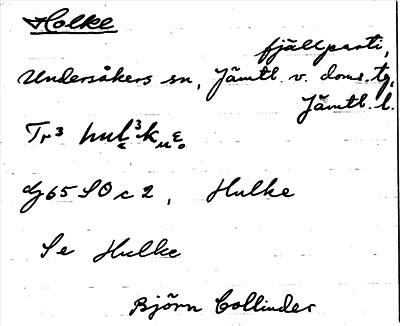 Holke
fjällparti,
Undersåkers sn, Jämtl. v. doms. tg,
Jämtl. l.
Tr³
dj 65 SO c 2, Hulke
Se Hulke
Björn Collinder